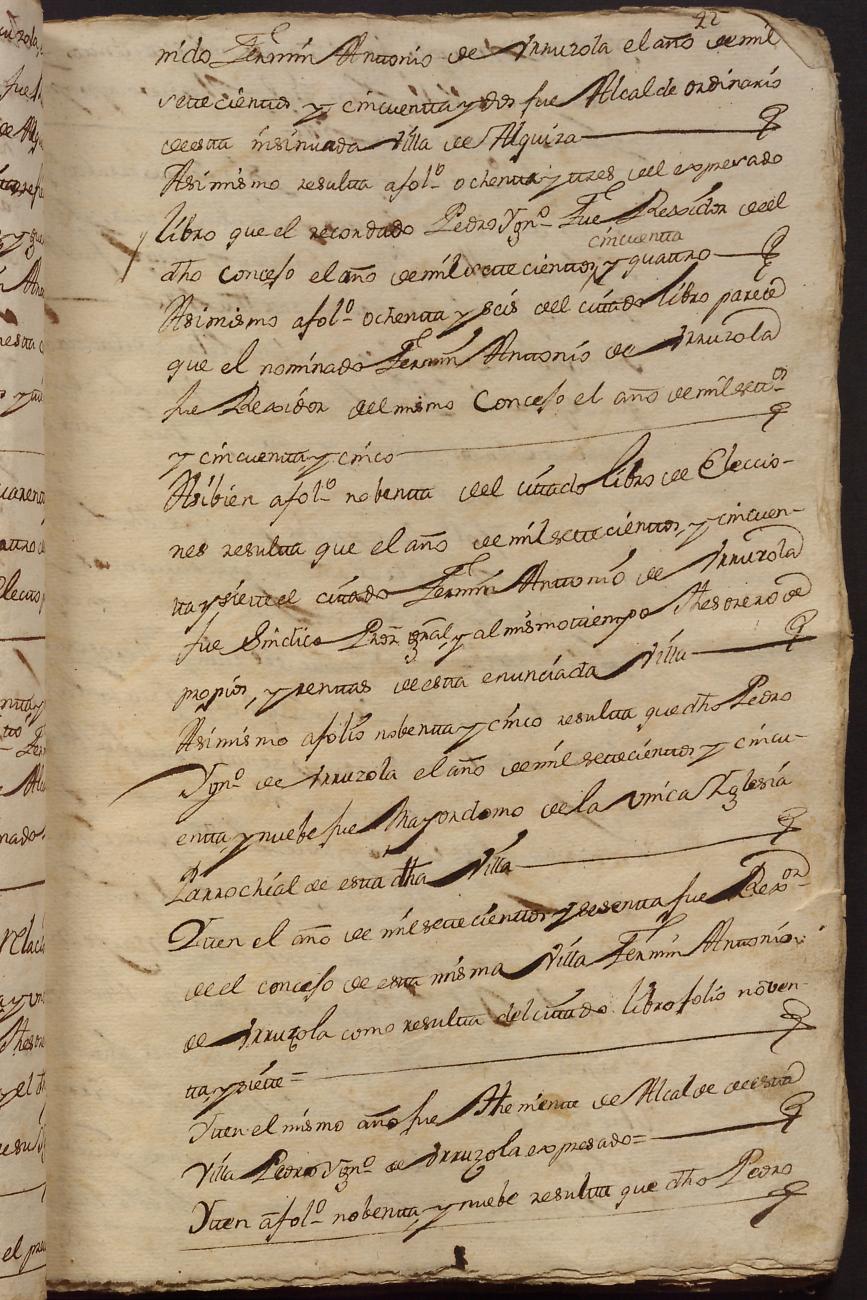 42
nido Fermin Anttonio de Irruzola el año de mil
settecientos y cincuentta y dos fue Alcalde ordinario
de esta insinuada Villa de Alquiza
Asimismo resultta a fol.º ochentta y ttres del expresado
libro que el recordado Pedro Ygn.º fue Rexidor de el
dho Concejo el año de mil settecienttos, y quattro
cincuentta
Asimismo a fol.º ochentta y seis del cittado libro parece
que el nominado Fermin Anttonio de Irruzola
fue Rexidor del mismo Concejo el año de mil sett.os
y cincuentta y cinco
Asibien a fol.º nobentta del cittado libro de Eleccio-
nes resultta que el año de mil settecienttos, y cincuen-
tta y siette el cittado Fermin Anttonio de Irruzola
fue Sindico Pror gral, y al mismo ttiempo Thesorero de
propios, y renttas de esta enunciada Villa
Asimismo a folio nobentta y cinco resultta que dho Pedro
Ygn.º de Irruzola el año de mil settecienttos y cincu-
entta, y nuebe fue Mayordomo de la vnica Yglesia
Parrochial de esta dha Villa
Ytten el año de mil settecienttos y sesentta fue Rex.or
de el concejo de esta misma Villa Fermin Anttonio
de Irruzola como resultta del cittado libro folio noven-
tta, y siette=
Ytten el mismo año fue Theniente de Alcalde de esta
Villa Pedro Ygn.º de Irruzola expresado=
Ytten a fol.º nobentta, y nuebe resultta que dho Pedro